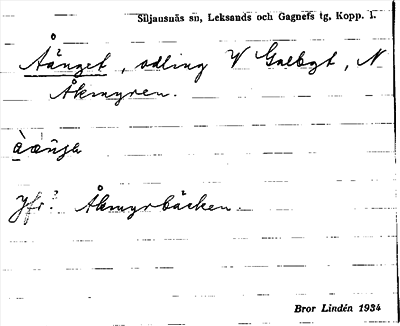 Siljansnäs sn, Leksands och Gagnefs tg, Kopp. l.
Åänget, odling V Galbgt, N
Åkmyren.
Jfr? Åkmyrbäcken.
Bror Lindén 1934